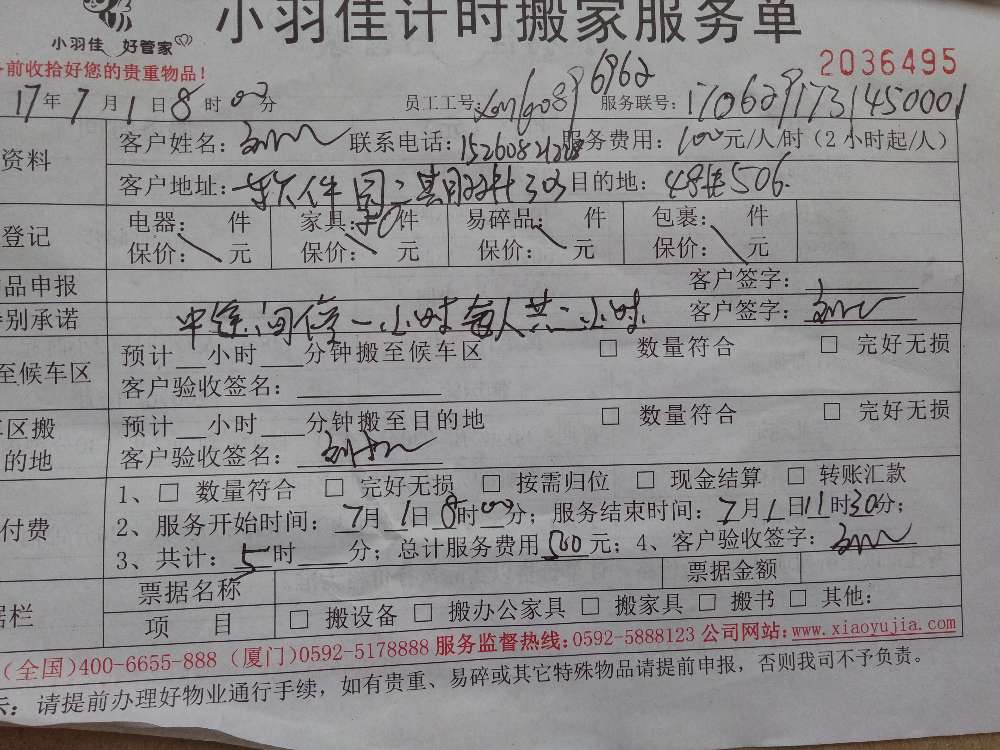 小羽佳计时搬家服务单
小羽佳 好管家
前收拾好您的贵重物品!
2036495
17年7月1日8时00分 员工工号: 6962 服务联号:
资料 客户姓名: 联系电话: 服务费用:100元/人/时(2小时起/人)
客户地址:软件园二期 目的地: 506
登记 电器: 件 家具: 件 易碎品: 件 包裹: 件
保价: 元 保价: 元 保价: 元 保价: 元
品申报 客户签字:
别承诺 中途间停一小时每人共二小时 客户签字:
至候车区 预计__小时___分钟搬至候车区 □ 数量符合 □ 完好无损
客户验收签名:
区搬 预计__小时___分钟搬至目的地 □ 数量符合 □ 完好无损
的地 客户验收签名:
1、□ 数量符合 □ 完好无损 □ 按需归位 □ 现金结算 □ 转账汇款
付费 2、服务开始时间:7月1日8时00分;服务结束时间:7月1日11时30分;
3、共计:5时___分;总计服务费用500元;4、客户验收签字:
票据名称 票据金额
据栏 项 目 □ 搬设备 □ 搬办公家具 □ 搬家具 □ 搬书 □ 其他:
(全国)400-6655-888 (厦门)0592-5178888 服务监督热线:0592-5888123 公司网站:www.xiaoyujia.com
示:请提前办理好物业通行手续,如有贵重、易碎或其它特殊物品请提前申报,否则我司不予负责。